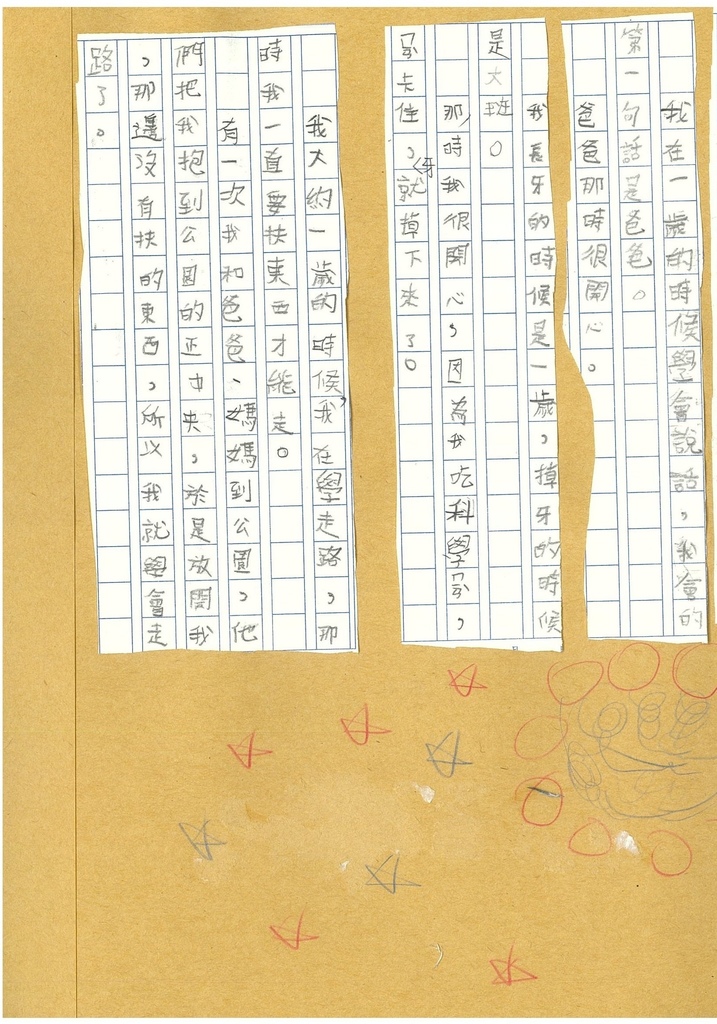 我在一歲的時候學會說話，我會的
第一句話是爸爸。
爸爸那時很開心。
我長牙的時候是一歲，掉牙的時候
是大班。
那時我很開心，因為我吃科學，
卡住，牙就掉下來了。
我大約一歲的時候，我在學走路，那
時我一直要扶東西才能走。
有一次我和爸爸、媽媽到公園，他
們把我抱到公園的正中央，於是放開我
，那邊沒有扶的東西，所以我就學會走
路了。